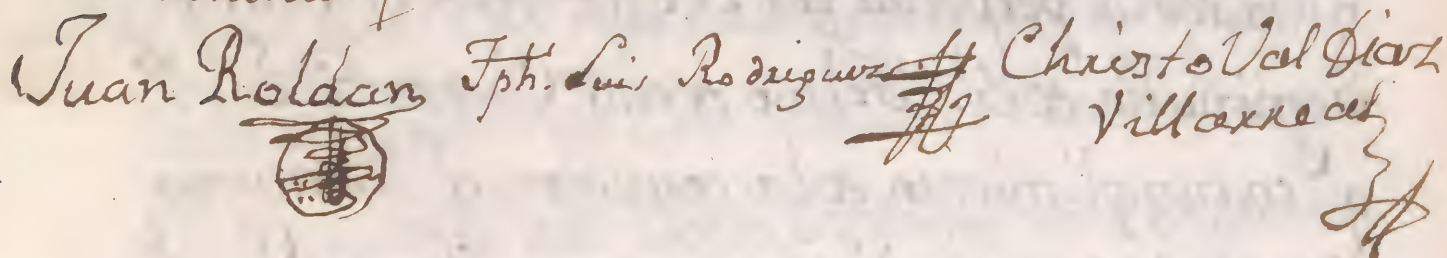 Juan Roldan Jph. Luis Rodriguez Christo Val Diaz
Villarreal